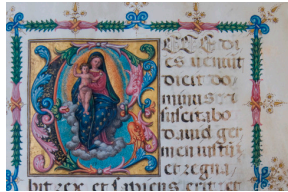 ECCE di
es ueniūt
dicit do
minus et
suscitabo
dauid ger
men iustū
et regna
bit rex et sapiens erit